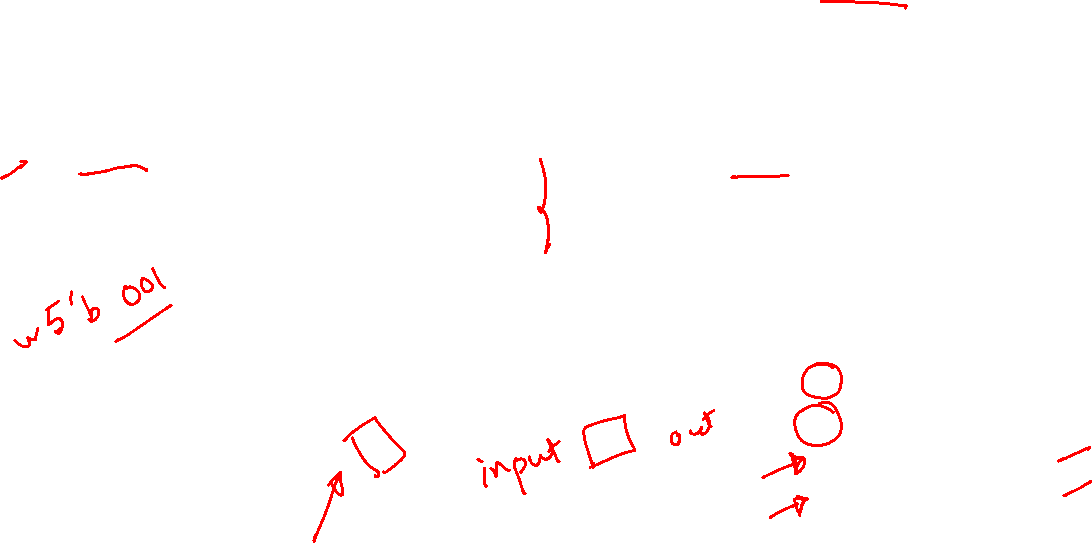 w5'b 001
input out